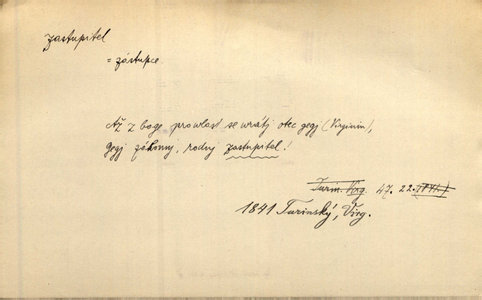 zastupitel
= zástupce
Až z boge prowlast se wrátj otec gegj (Virginin),
gegj zákonny, rodny zastupitel!
Turin. Virg. 47. 22.
1841 Turinský, Virg.